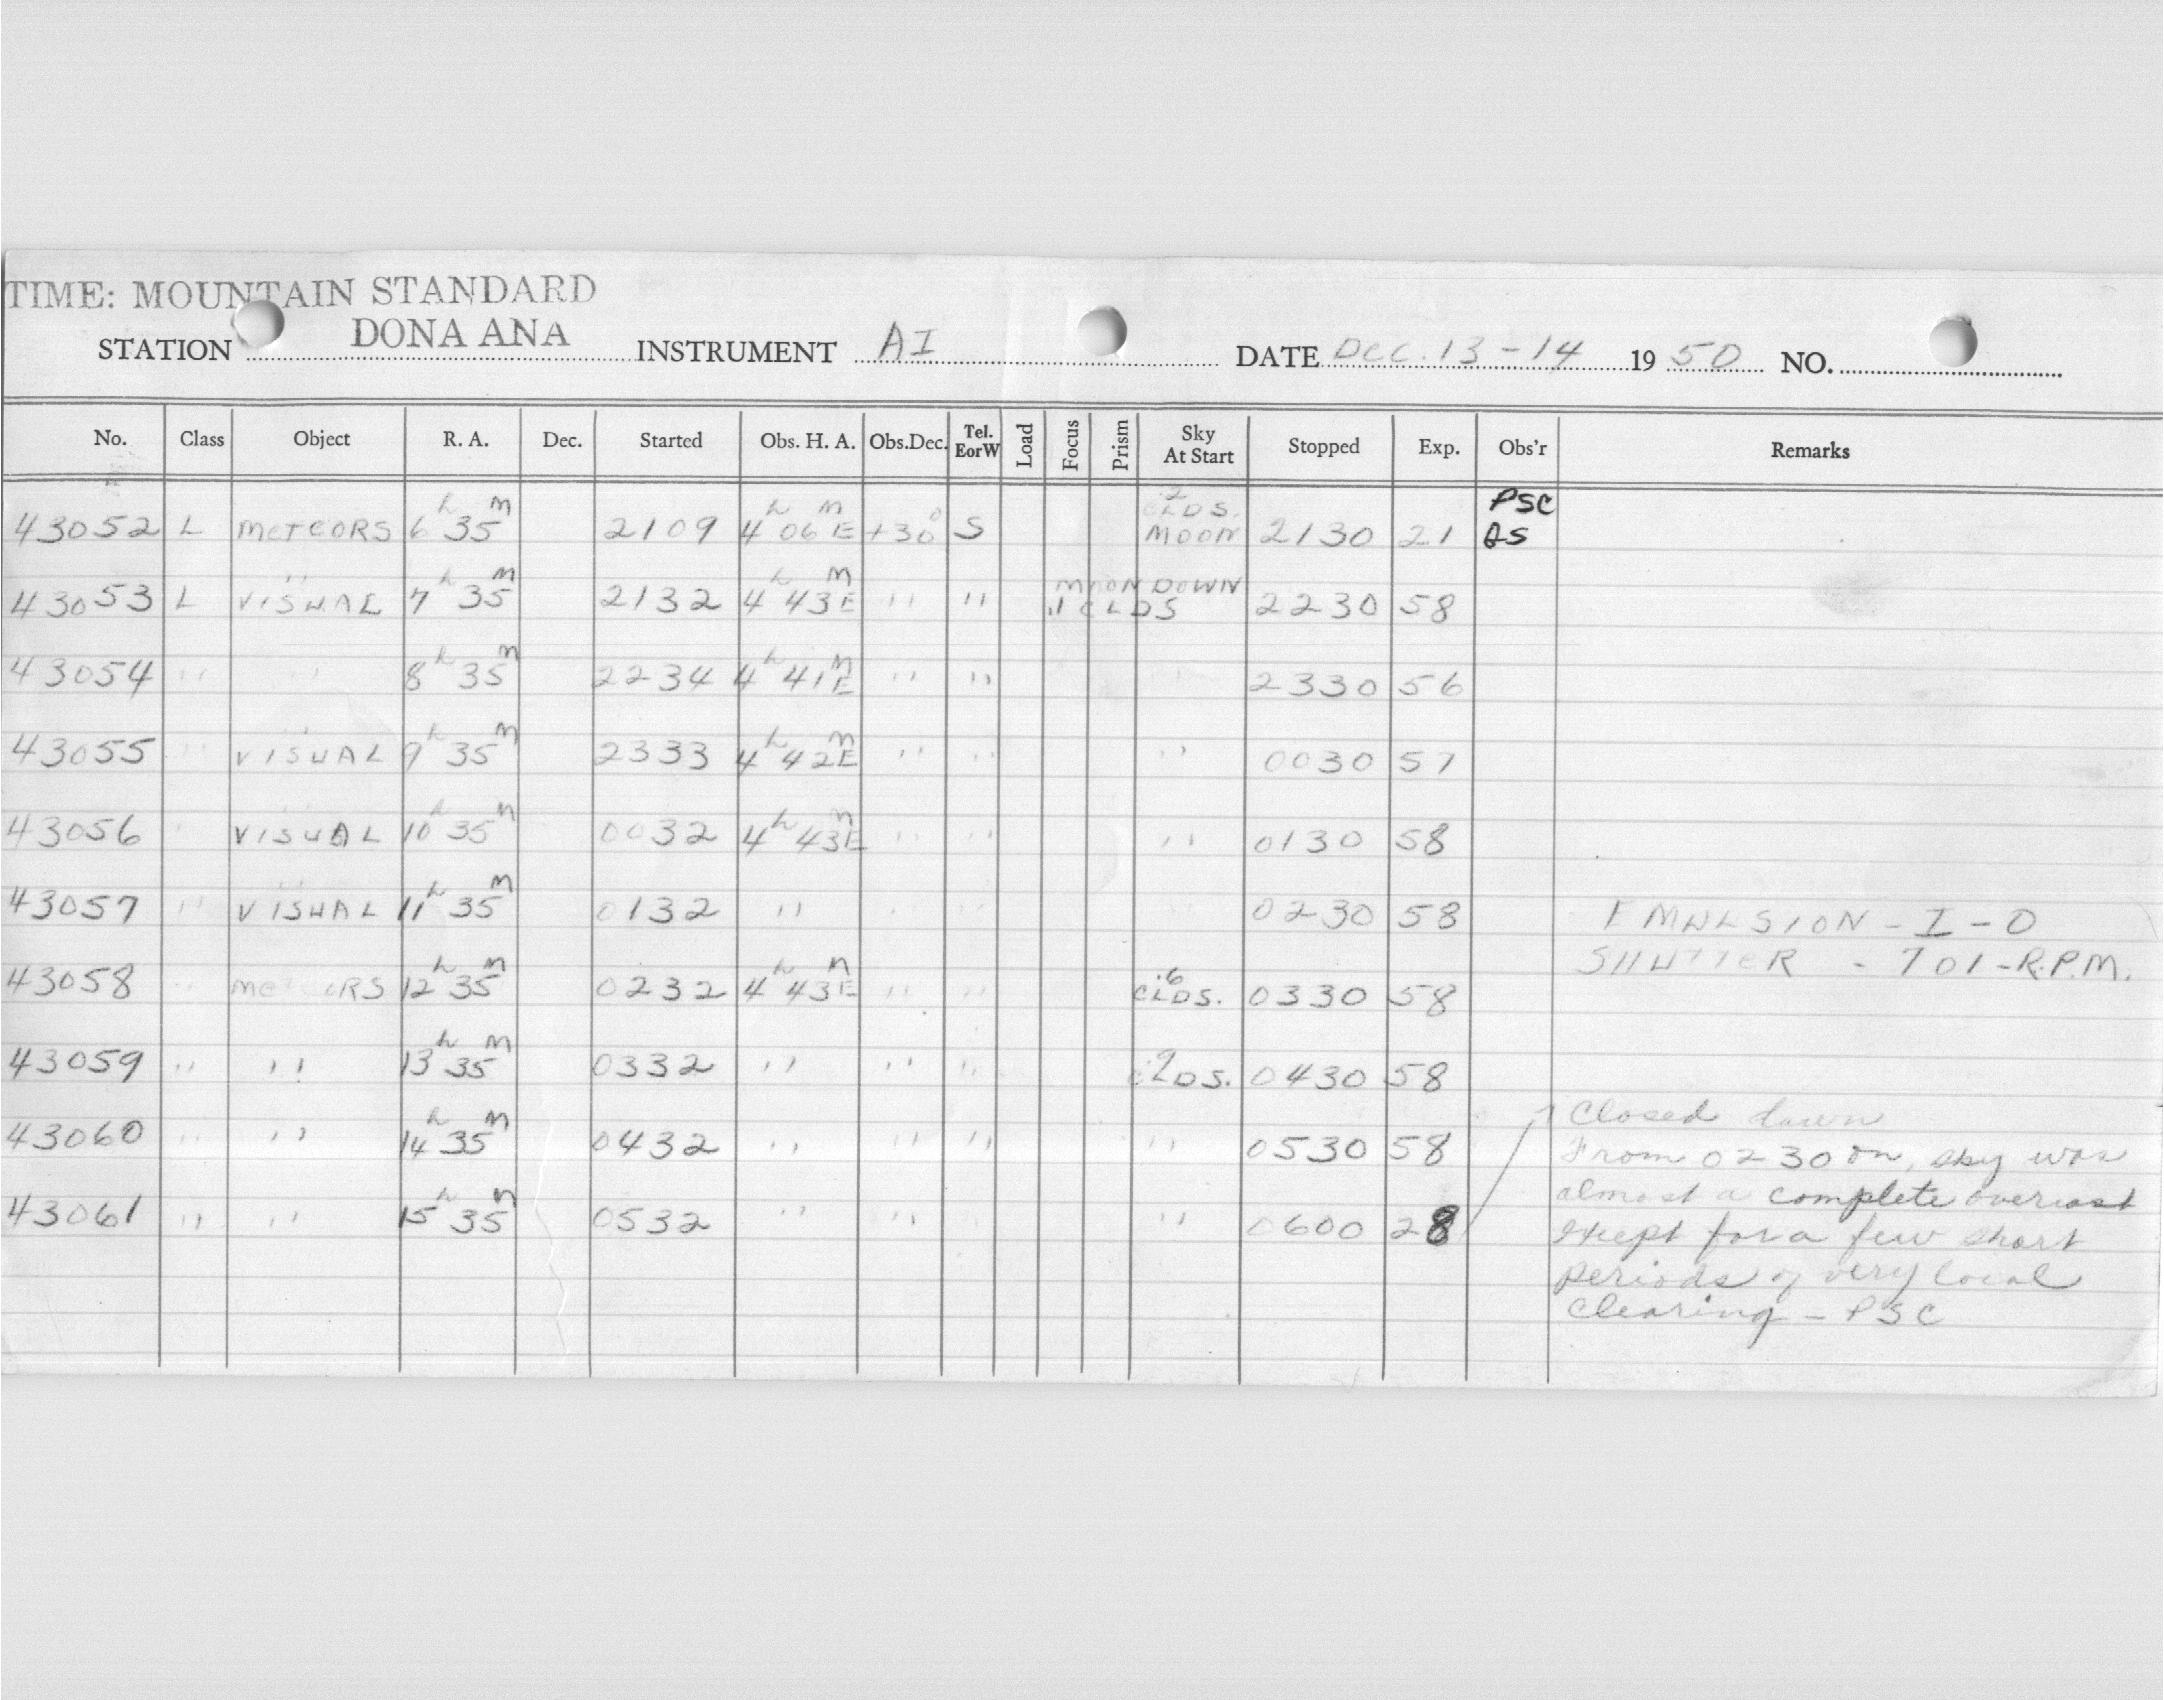 TIME: MOUNTAIN STANDARD
STATION DONA ANA INSTRUMENT AI DATE DEC. 13-14 1950 NO.
No. Class Object R. A. Dec. Started Obs. H. A. Obs.Dec. Tel. EorW Load Focus Prism Sky At Start Stopped Exp. Obs'r Remarks
43052 L METEORS 6h 35m 2109 4h 06m E +30° S .2 CLDS. MOON 2130 21 PSC AS
43053 L " VISUAL 7h 35m 2132 4h 43m E " " MOON DOWN .1 CLDS 2230 58
43054 " " 8h 35m 2234 4h 41m E " " " 2330 56
43055 " " VISUAL 9h 35m 2333 4h 42m E " " " 0030 57
43056 " " VISUAL 10h 35m 0032 4h 43m E " " " 0130 58
43057 " " VISUAL 11h 35m 0132 " " " 0230 58
EMULSION - I - O
SHUTTER - 701 - R.P.M.
43058 " METEORS 12h 35m 0232 4h 43m E " " .6 CLDS. 0330 58
43059 " " 13h 35m 0332 " " " .9 CLDS. 0430 58
43060 " " 14h 35m 0432 " " " " 0530 58
43061 " " 15h 35m 0532 " " " " 0600 28
Closed down
From 0230 on, sky was
almost a complete overcast
except for a few short
periods of very local
clearing - PSC